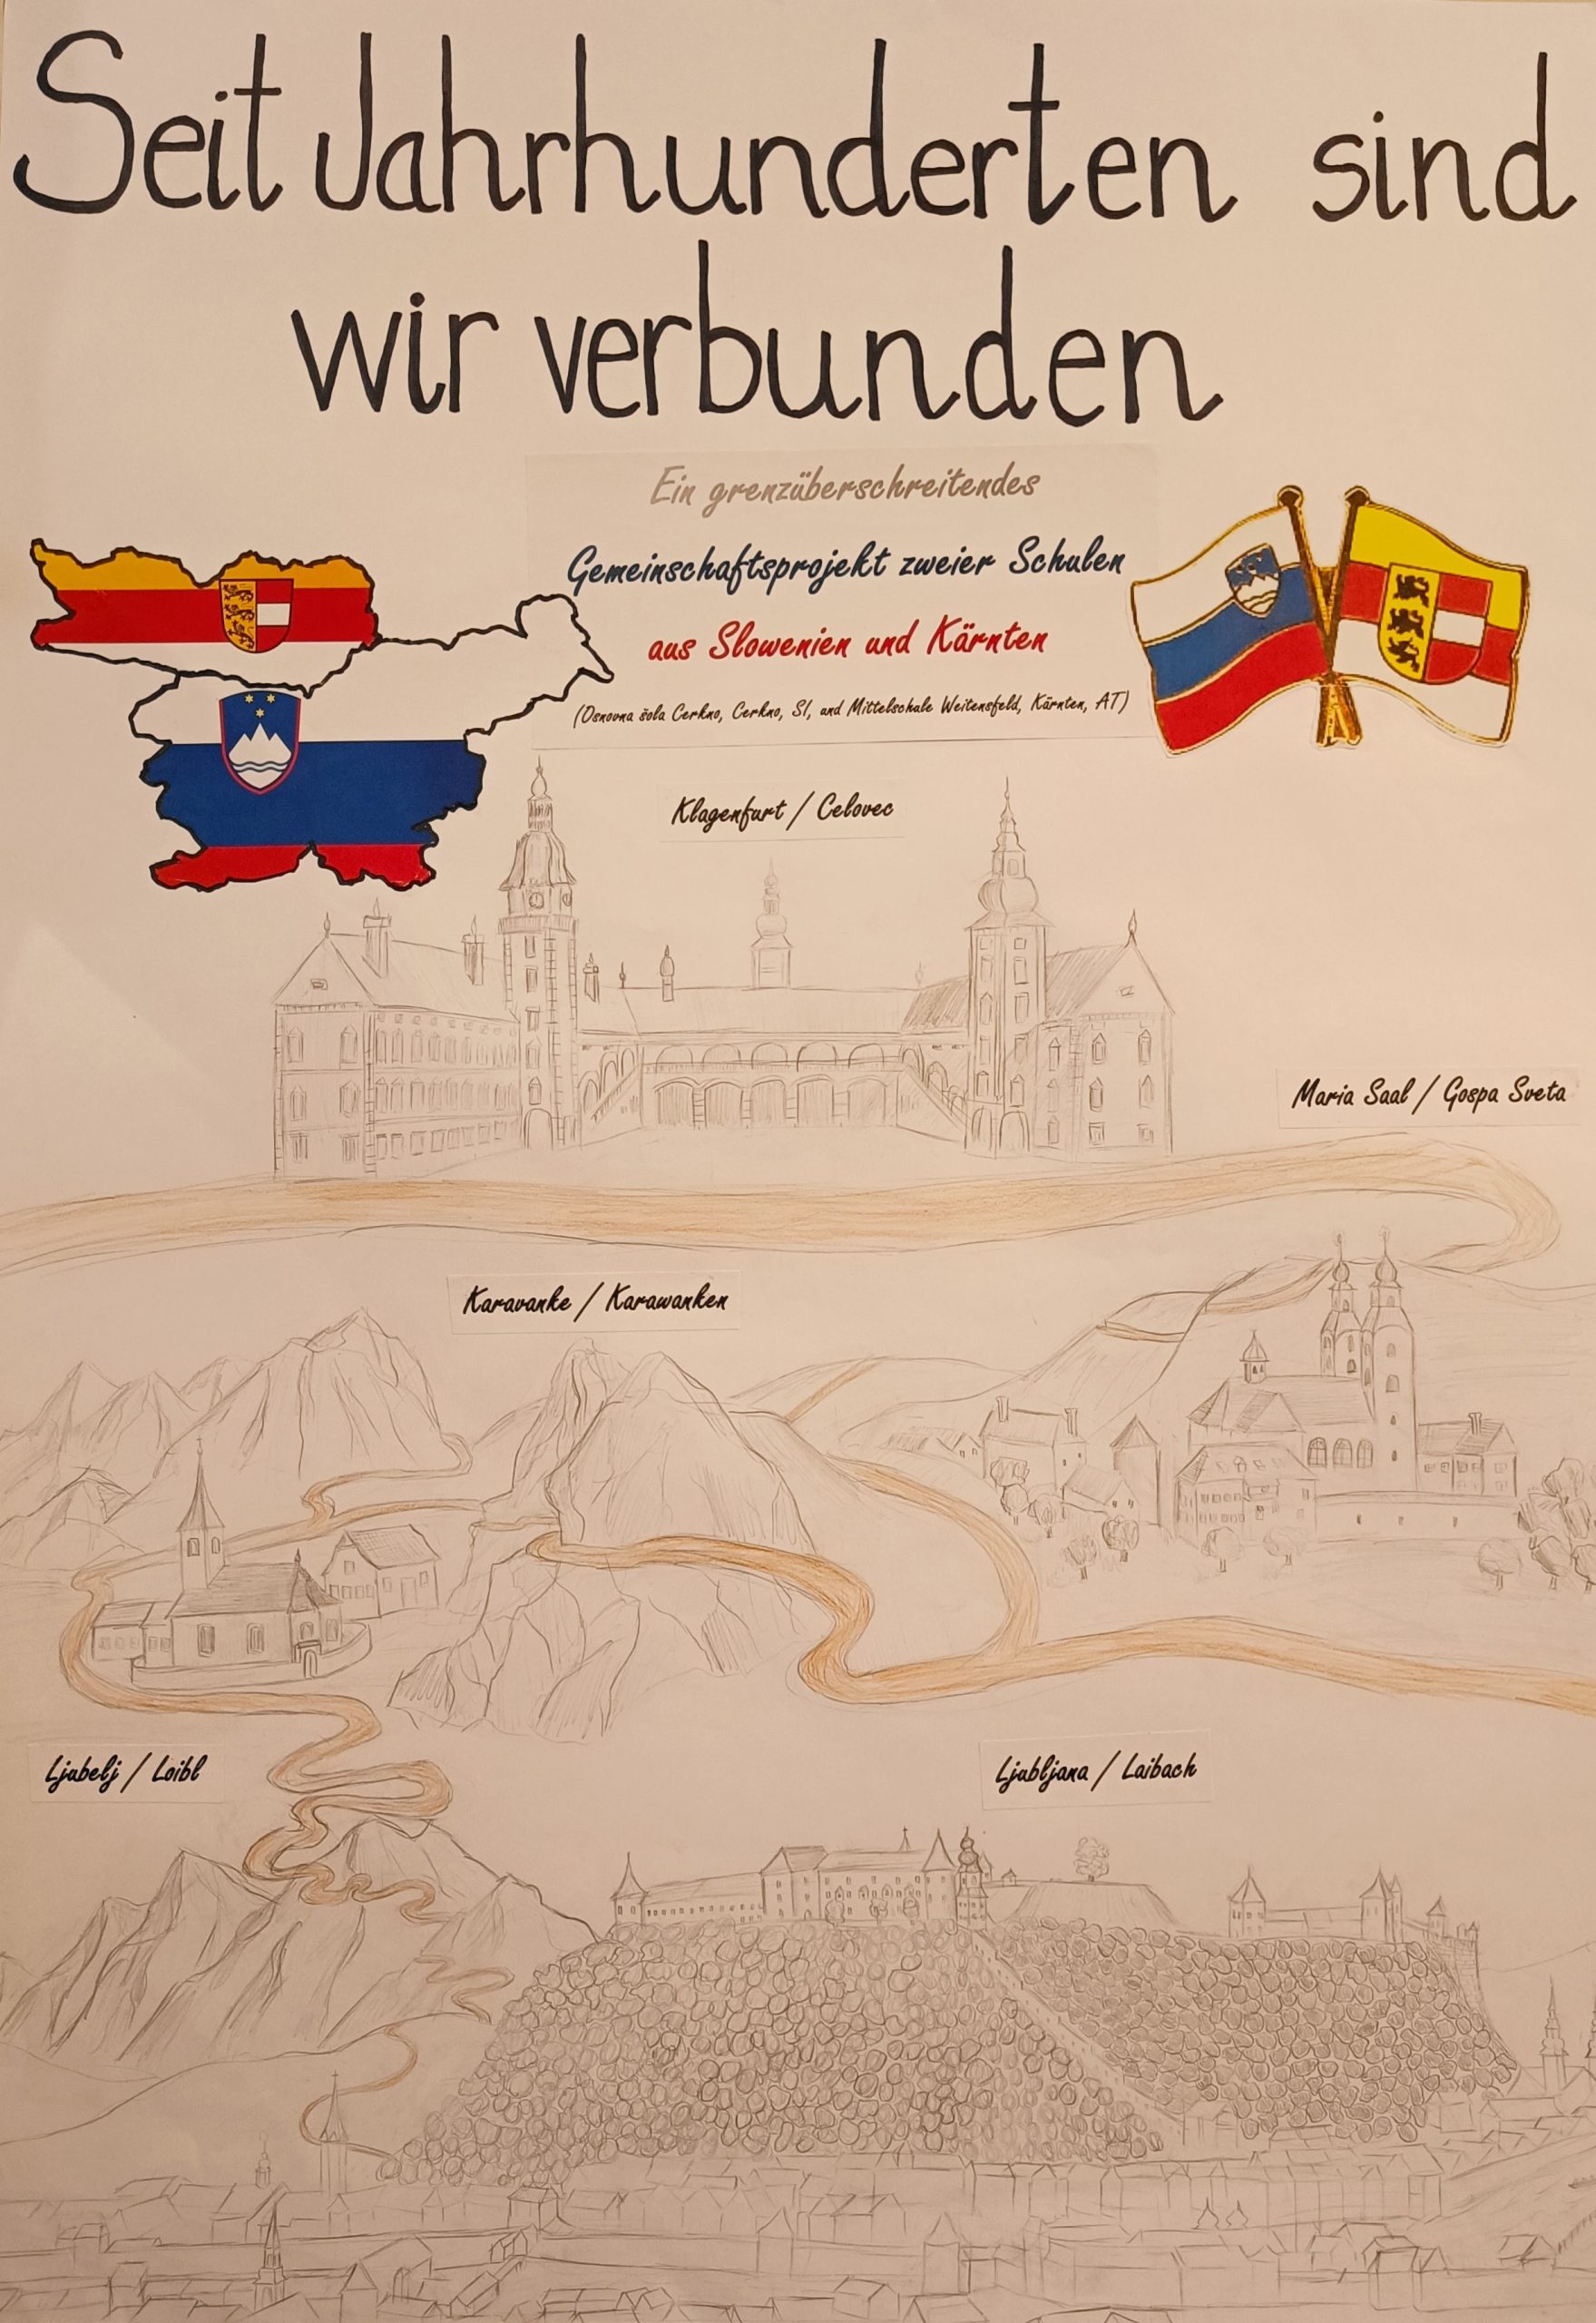 Seit Jahrhunderten sind
wir verbunden
Ein grenzüberschreitendes
Gemeinschaftsprojekt zweier Schulen
aus Slowenien und Kärnten
(Osnovna šola Cerkno, Cerkno, SI, und Mittelschule Weitensfeld, Kärnten, AT)
Klagenfurt / Celovec
Maria Saal / Gospa Sveta
Karavanke / Karawanken
Ljubelj / Loibl
Ljubljana / Laibach